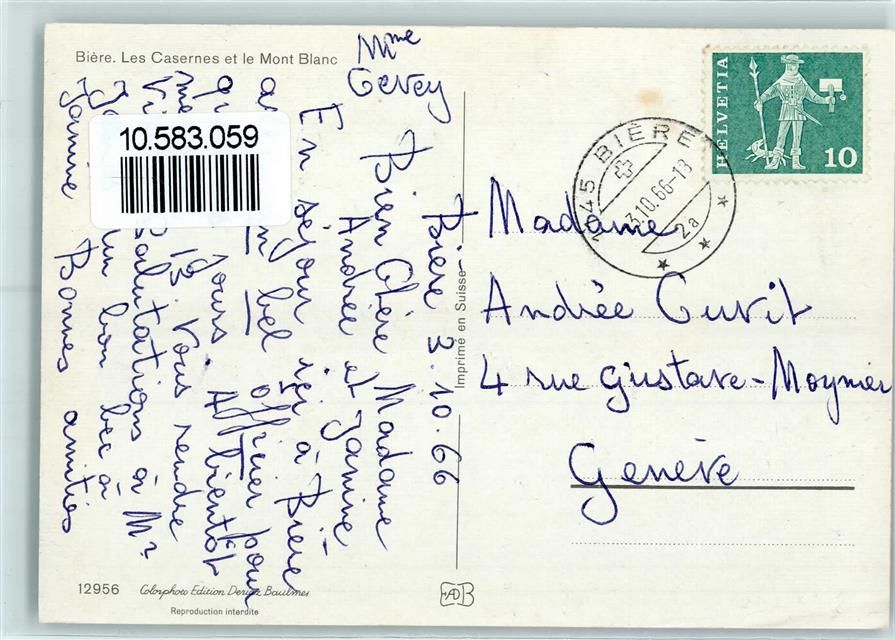 Bière. Les Casernes et le Mont Blanc
Mme
Gevey
10.583.059
HELVETIA
10
1145 BIÈRE
3.10.66-18
2a
Bière 3.10.66
Bien Chère Madame
Andrée et Janine
En séjour ici à Bière
bel officier pour
jours. A bientôt
13 vous rendre
Salutations à Mr
un bon bec à
Janine Bonnes amitiés
Imprimé en Suisse
Madame
Andrée Cuvit
4 rue Gustave-Moynier
Genève
12956
Colorphoto Edition Deriaz Baulmes
Reproduction interdite